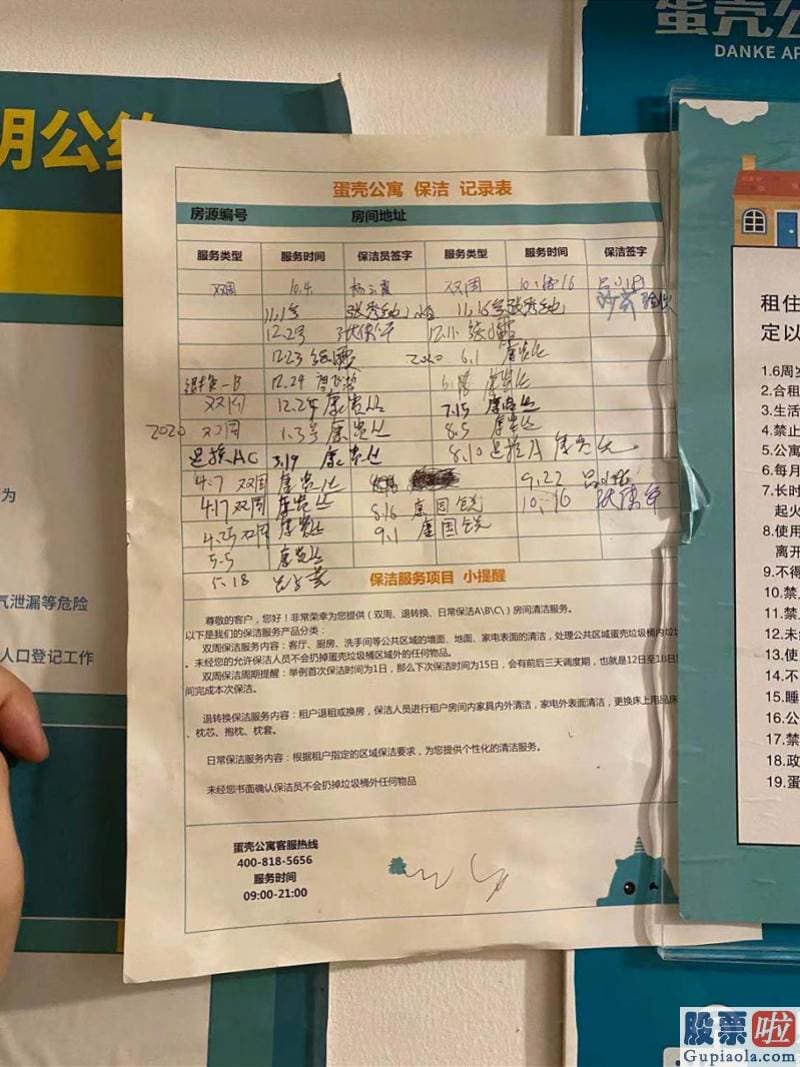 蛋壳公
DANKE AP
明公约
蛋壳公寓 保洁 记录表
房源编号 房间地址
服务类型 服务时间 保洁员签字 服务类型 服务时间 保洁签字
双周 10.4 双周
11.1号 11.16号
12.2号 12.11
12.23 2020 6.1 康贵丛
退换—B 12.24 康贵丛
双周 12.2 康贵丛 7.15 康贵丛
2020 双周 1.3号 康贵丛 8.5 康贵丛
退换AC 3.19 康贵丛 8.10 退换A
4.7 双周 康贵丛 9.22
4.17 双周 康贵丛 8.16 康国锐 10.16
4.25 双周 康贵丛 9.1 康国锐
5.5 康贵丛
5.18
保洁服务项目 小提醒
尊敬的客户，您好！非常荣幸为您提供（双周、退转换、日常保洁A\B\C\）房间清洁服务。
以下是我们的保洁服务产品分类：
双周保洁服务内容：客厅、厨房、洗手间等公共区域的墙面、地面、家电表面的清洁，处理公共区域蛋壳垃圾桶内垃圾
。未经您的允许保洁人员不会扔掉蛋壳垃圾桶区域外的任何物品。
双周保洁周期提醒：举例首次保洁时间为1日，那么下次保洁时间为15日，会有前后三天调度期，也就是12日至18日
间完成本次保洁。
退转换保洁服务内容：租户退租或换房，保洁人员进行租户房间内家具内外清洁，家电外表面清洁，更换床上用品床
、枕芯、抱枕、枕套。
日常保洁服务内容：根据租户指定的区域保洁要求，为您提供个性化的清洁服务。
未经您书面确认保洁员不会扔掉垃圾桶外任何物品
蛋壳公寓客服热线
400-818-5656
服务时间
09:00-21:00
为
气泄漏等危险
人口登记工作
租住
定以
1.6周岁
2.合租
3.生活
4.禁止
5.公寓
6.每月
7.长时
起火
8.使用
离开
9.不得
10.禁
11.禁
12.未
13.使
14.不
15.睡
16.公
17.禁
18.政
19.蛋
股票啦
Gupiaola.com